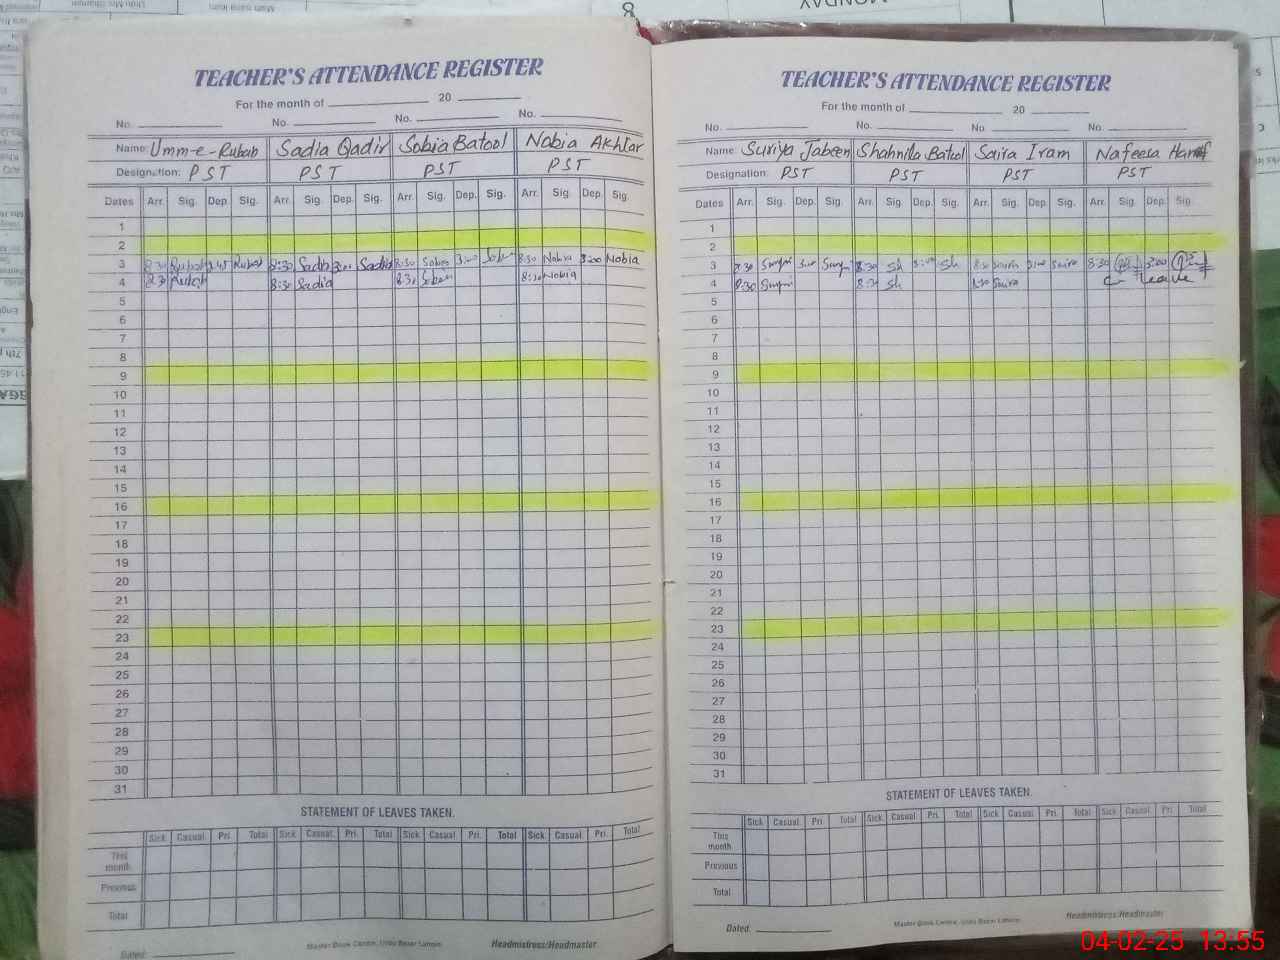 MONDAY
8
TEACHER'S ATTENDANCE REGISTER
For the month of 20
No. No. No. No.
Name: Umm-e-Rubab Sadia Qadir Sobia Batool Nobia Akhtar
Designation: PST PST PST PST
Dates Arr. Sig. Dep. Sig. Arr. Sig. Dep. Sig. Arr. Sig. Dep. Sig. Arr. Sig. Dep. Sig.
1
2
3 8:30 Rubab 2:45 Rubab 8:30 Sadia 3:00 Sadia 8:30 Sobia 3:00 8:30 Nobia 3:00 Nobia
4 8:30 Rubab 8:30 Sadia 8:30 Sobia 8:30 Nobia
5
6
7
8
9
10
11
12
13
14
15
16
17
18
19
20
21
22
23
24
25
26
27
28
29
30
31
STATEMENT OF LEAVES TAKEN.
Sick Casual Pri. Total Sick Casual Pri. Total Sick Casual Pri. Total Sick Casual Pri. Total
This month
Previous
Total
Dated: Master Book Centre, Urdu Bazar Lahore. Headmistress/Headmaster
TEACHER'S ATTENDANCE REGISTER
For the month of 20
No. No. No. No.
Name: Suriya Jabeen Shahnila Batool Saira Iram Nafeesa Hanif
Designation: PST PST PST PST
Dates Arr. Sig. Dep. Sig. Arr. Sig. Dep. Sig. Arr. Sig. Dep. Sig. Arr. Sig. Dep. Sig.
1
2
3 8:30 3:00 8:30 Sh 3:00 Sh 8:30 Saira 3:00 Saira 8:30 3:00
4 8:30 8:30 Sh 8:30 Saira C leave
5
6
7
8
9
10
11
12
13
14
15
16
17
18
19
20
21
22
23
24
25
26
27
28
29
30
31
STATEMENT OF LEAVES TAKEN.
Sick Casual Pri. Total Sick Casual Pri. Total Sick Casual Pri. Total Sick Casual Pri. Total
This month
Previous
Total
Dated: Master Book Centre, Urdu Bazar Lahore. Headmistress/Headmaster
04-02-25 13:55